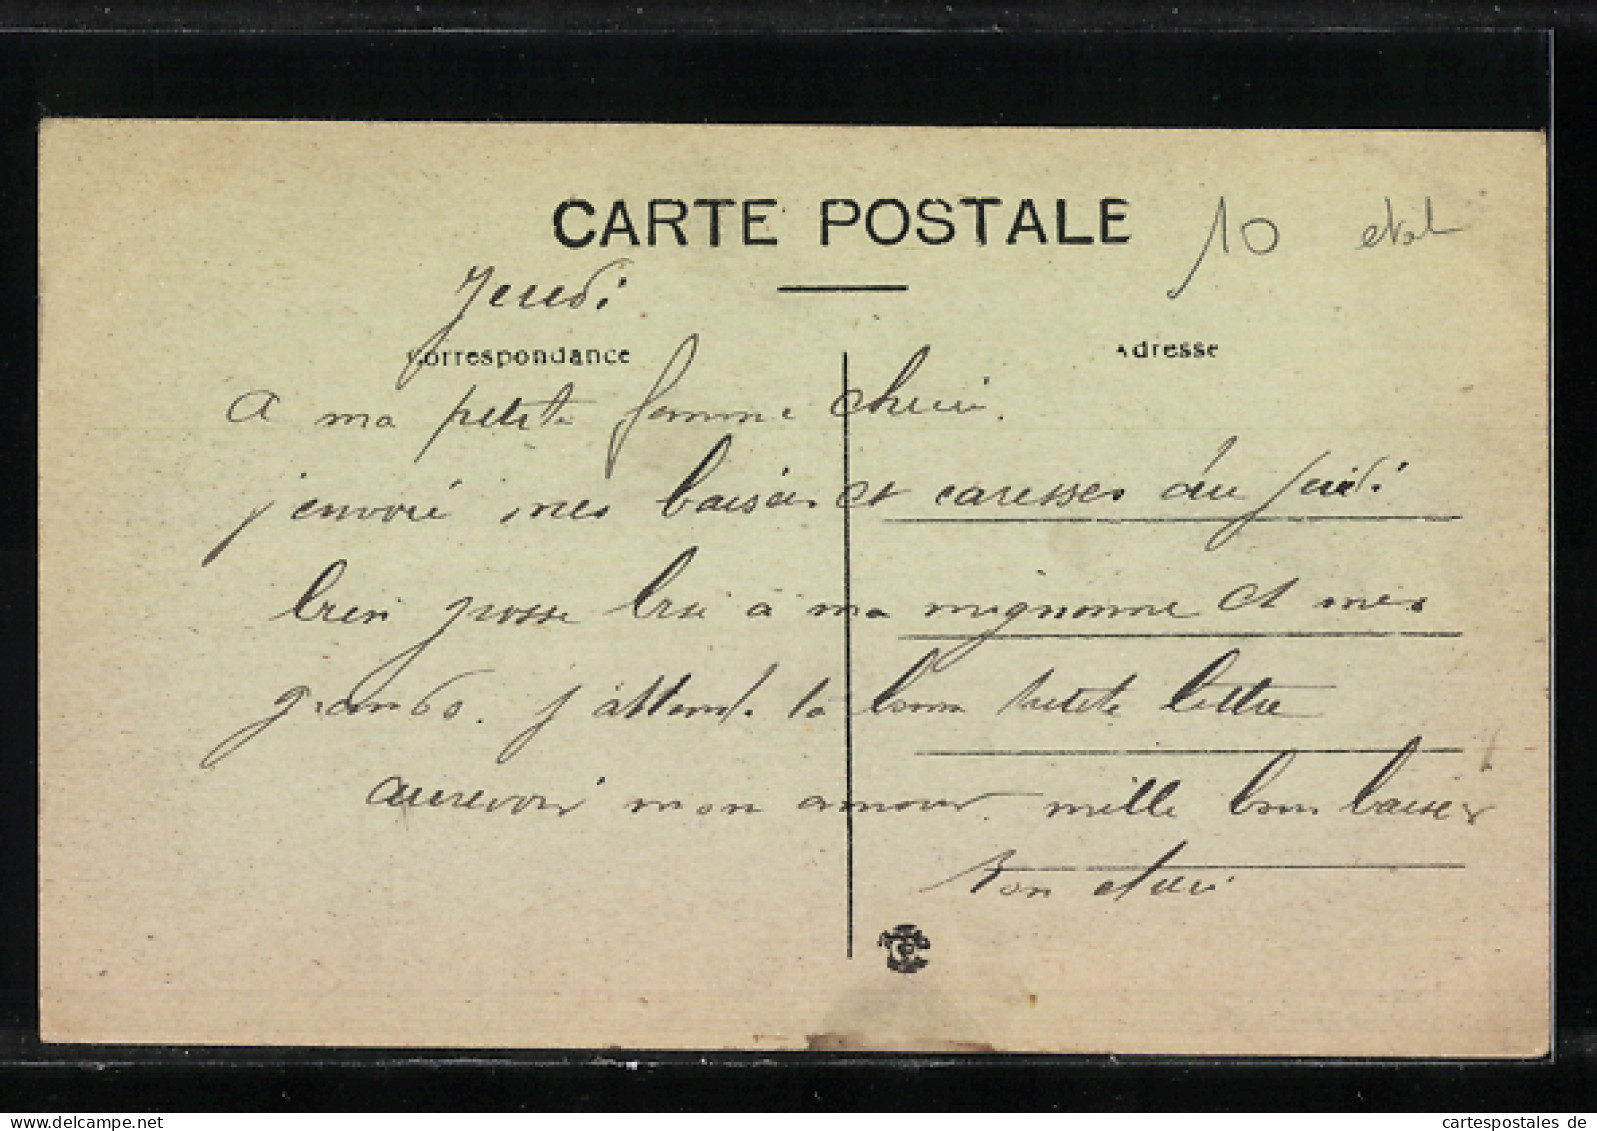 CARTE POSTALE
10 etat
Jeudi
Correspondance
Adresse
a ma petite femme cheri.
j'envoie mes baisers et caresses du jeudi
bien grosse bise à ma mignonne et mes
grands. j'attends ta bonne petite lettre
aurevoir mon amour. mille bons baiser
ton
cartespostales de